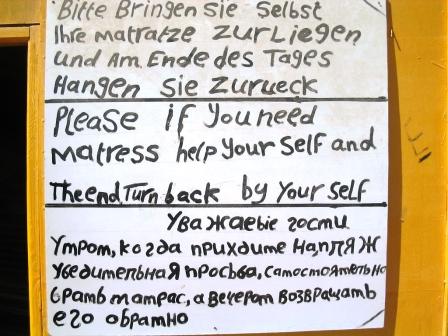 Bitte Bringen Sie Selbst
Ihre matratze zur Liegen
und Am Ende des Tages
Hangen Sie Zurueck
Please if you need
matress help your self and
The end, Turn back by your self
Уважаевые гости
Утром, когда приходите на пляж
убедительная просьба, самостоятельно
брать матрас, а вечером возвращать
его обратно